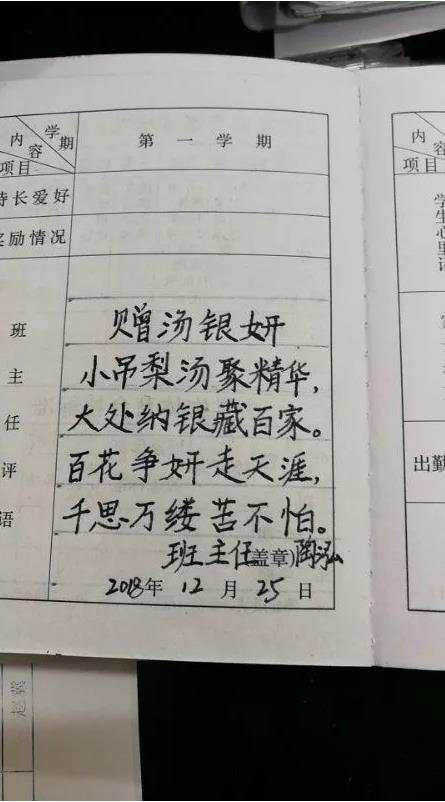 学期
内容
项目
第一学期
特长爱好
奖励情况
班主任评语
赠汤银妍
小吊梨汤聚精华,
大处纳银藏百家。
百花争妍走天涯,
千思万缕苦不怕。
班主任(盖章)陶泓
2018年12月25日
内容
项目
学生心里话
出勤